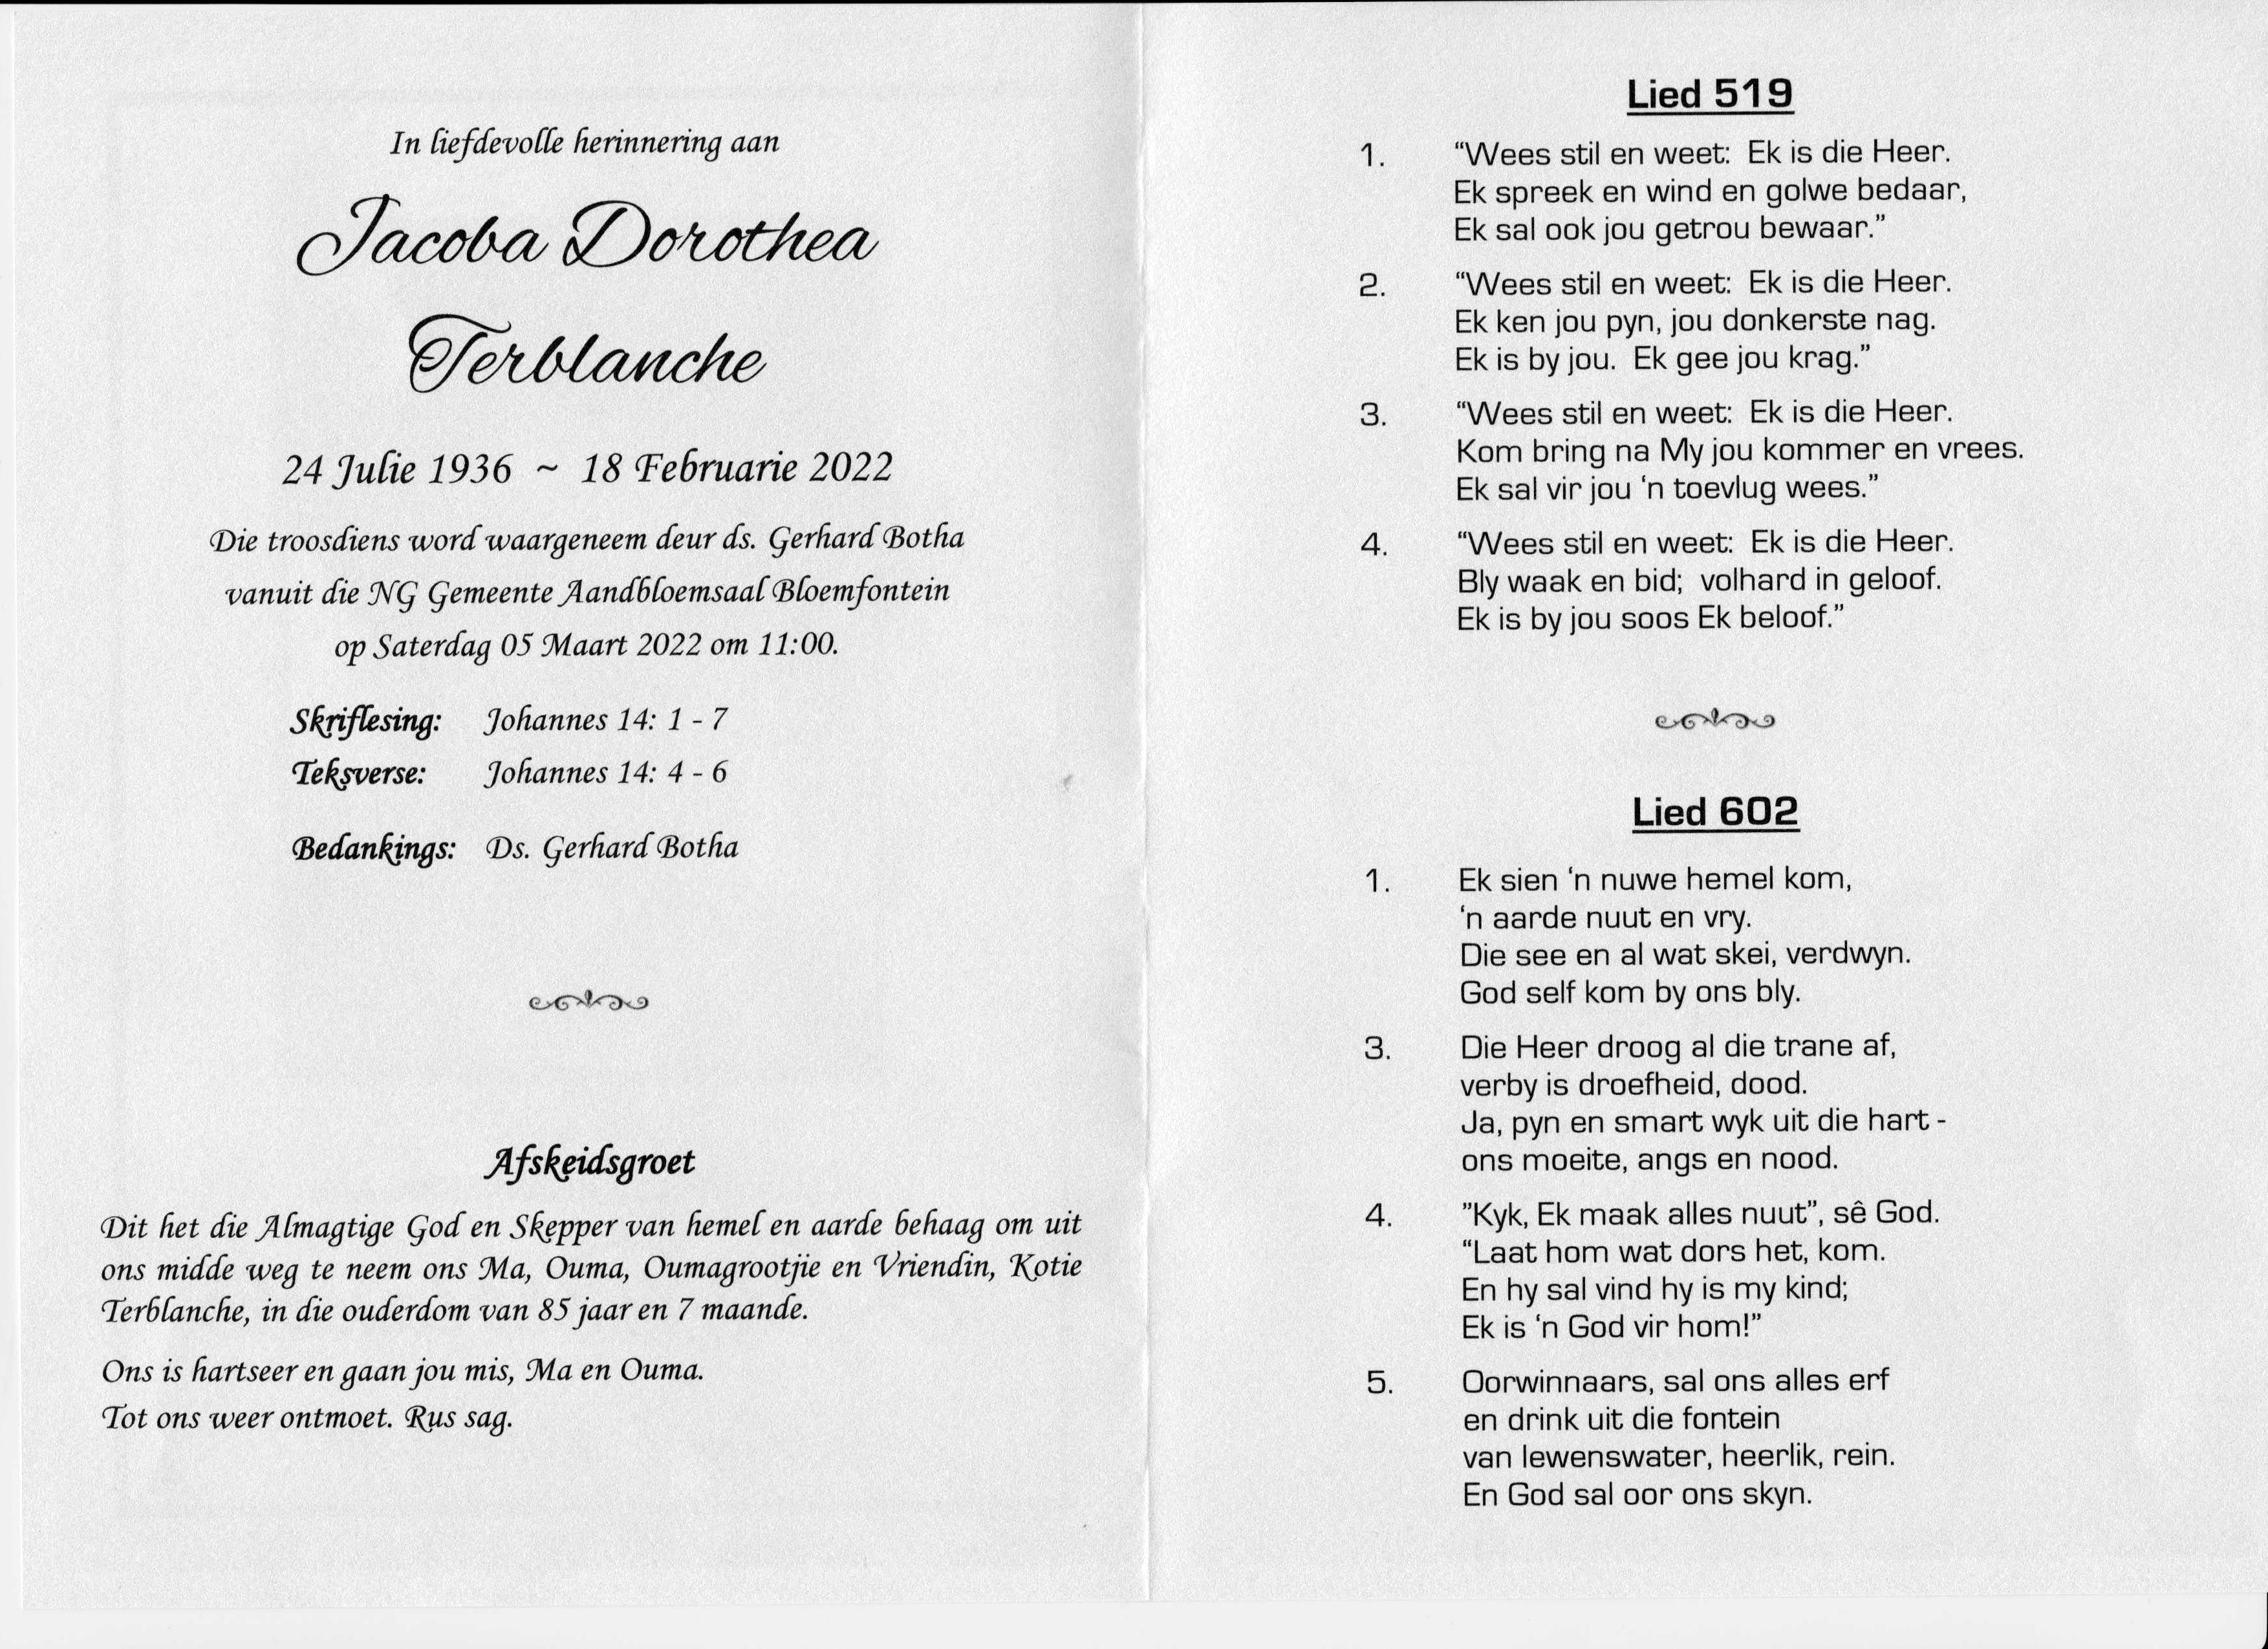 In liefdevolle herinnering aan
Jacoba Dorothea
Terblanche
24 Julie 1936 ~ 18 Februarie 2022
Die troosdiens word waargeneem deur ds. Gerhard Botha
vanuit die NG Gemeente Aandbloemsaal Bloemfontein
op Saterdag 05 Maart 2022 om 11:00.
Skriflesing: Johannes 14: 1 - 7
Teksverse: Johannes 14: 4 - 6
Bedankings: Ds. Gerhard Botha
Afskeidsgroet
Dit het die Almagtige God en Skepper van hemel en aarde behaag om uit
ons midde weg te neem ons Ma, Ouma, Oumagrootjie en Vriendin, Kotie
Terblanche, in die ouderdom van 85 jaar en 7 maande.
Ons is hartseer en gaan jou mis, Ma en Ouma.
Tot ons weer ontmoet. Rus sag.
Lied 519
1. “Wees stil en weet: Ek is die Heer.
Ek spreek en wind en golwe bedaar,
Ek sal ook jou getrou bewaar.”
2. “Wees stil en weet: Ek is die Heer.
Ek ken jou pyn, jou donkerste nag.
Ek is by jou. Ek gee jou krag.”
3. “Wees stil en weet: Ek is die Heer.
Kom bring na My jou kommer en vrees.
Ek sal vir jou ‘n toevlug wees.”
4. “Wees stil en weet: Ek is die Heer.
Bly waak en bid; volhard in geloof.
Ek is by jou soos Ek beloof.”
Lied 602
1. Ek sien ‘n nuwe hemel kom,
‘n aarde nuut en vry.
Die see en al wat skei, verdwyn.
God self kom by ons bly.
3. Die Heer droog al die trane af,
verby is droefheid, dood.
Ja, pyn en smart wyk uit die hart -
ons moeite, angs en nood.
4. ”Kyk, Ek maak alles nuut”, sê God.
“Laat hom wat dors het, kom.
En hy sal vind hy is my kind;
Ek is ‘n God vir hom!”
5. Oorwinnaars, sal ons alles erf
en drink uit die fontein
van lewenswater, heerlik, rein.
En God sal oor ons skyn.